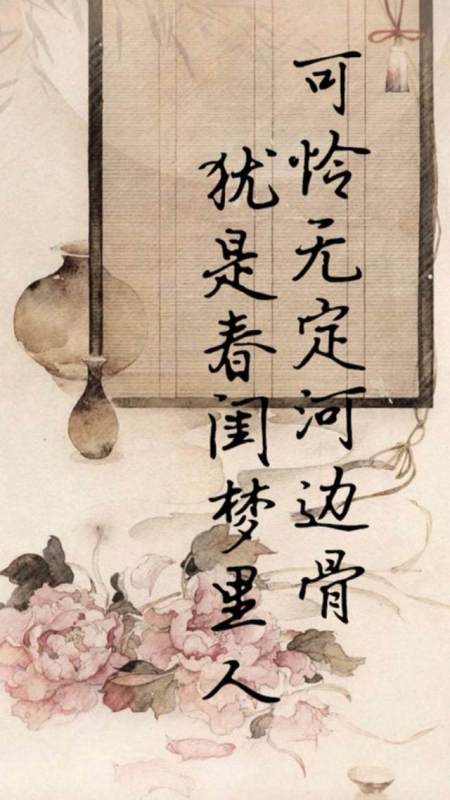 可怜无定河边骨
犹是春闺梦里人